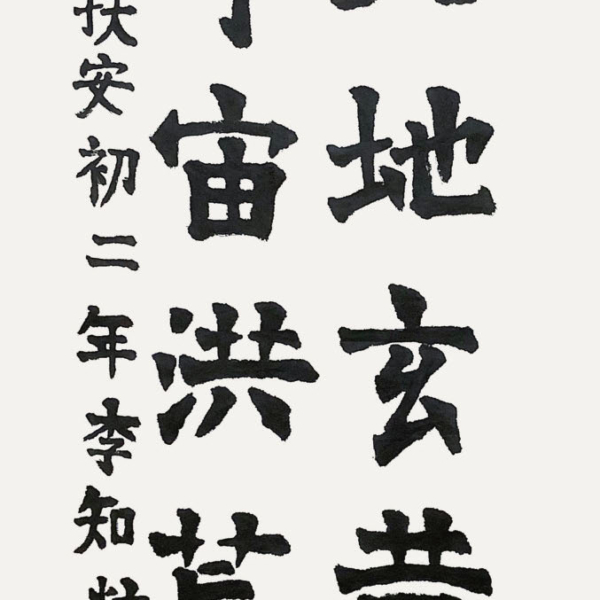 地玄黃
宙洪荒
扶安初二年李知